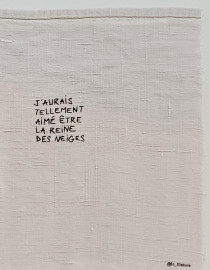 J'AURAIS
TELLEMENT
AIMÉ ÊTRE
LA REINE
DES NEIGES